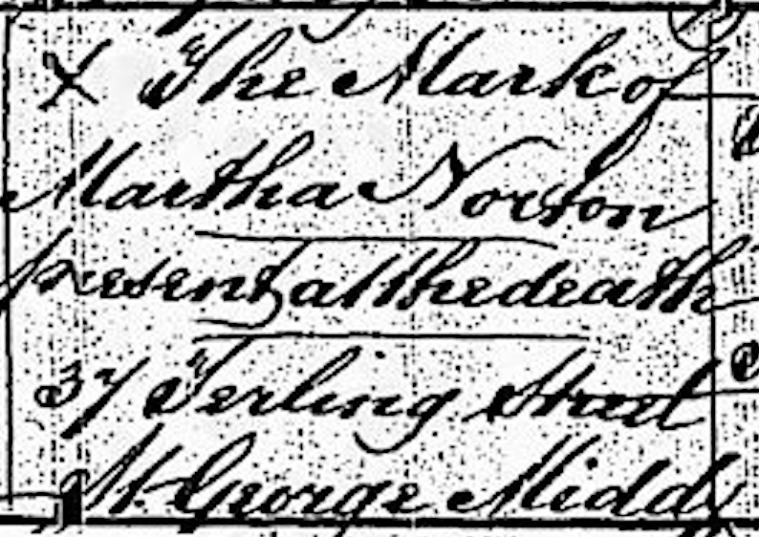 X The Mark of
Martha Norton
present at the death
37 Terling Street
St. George Midds